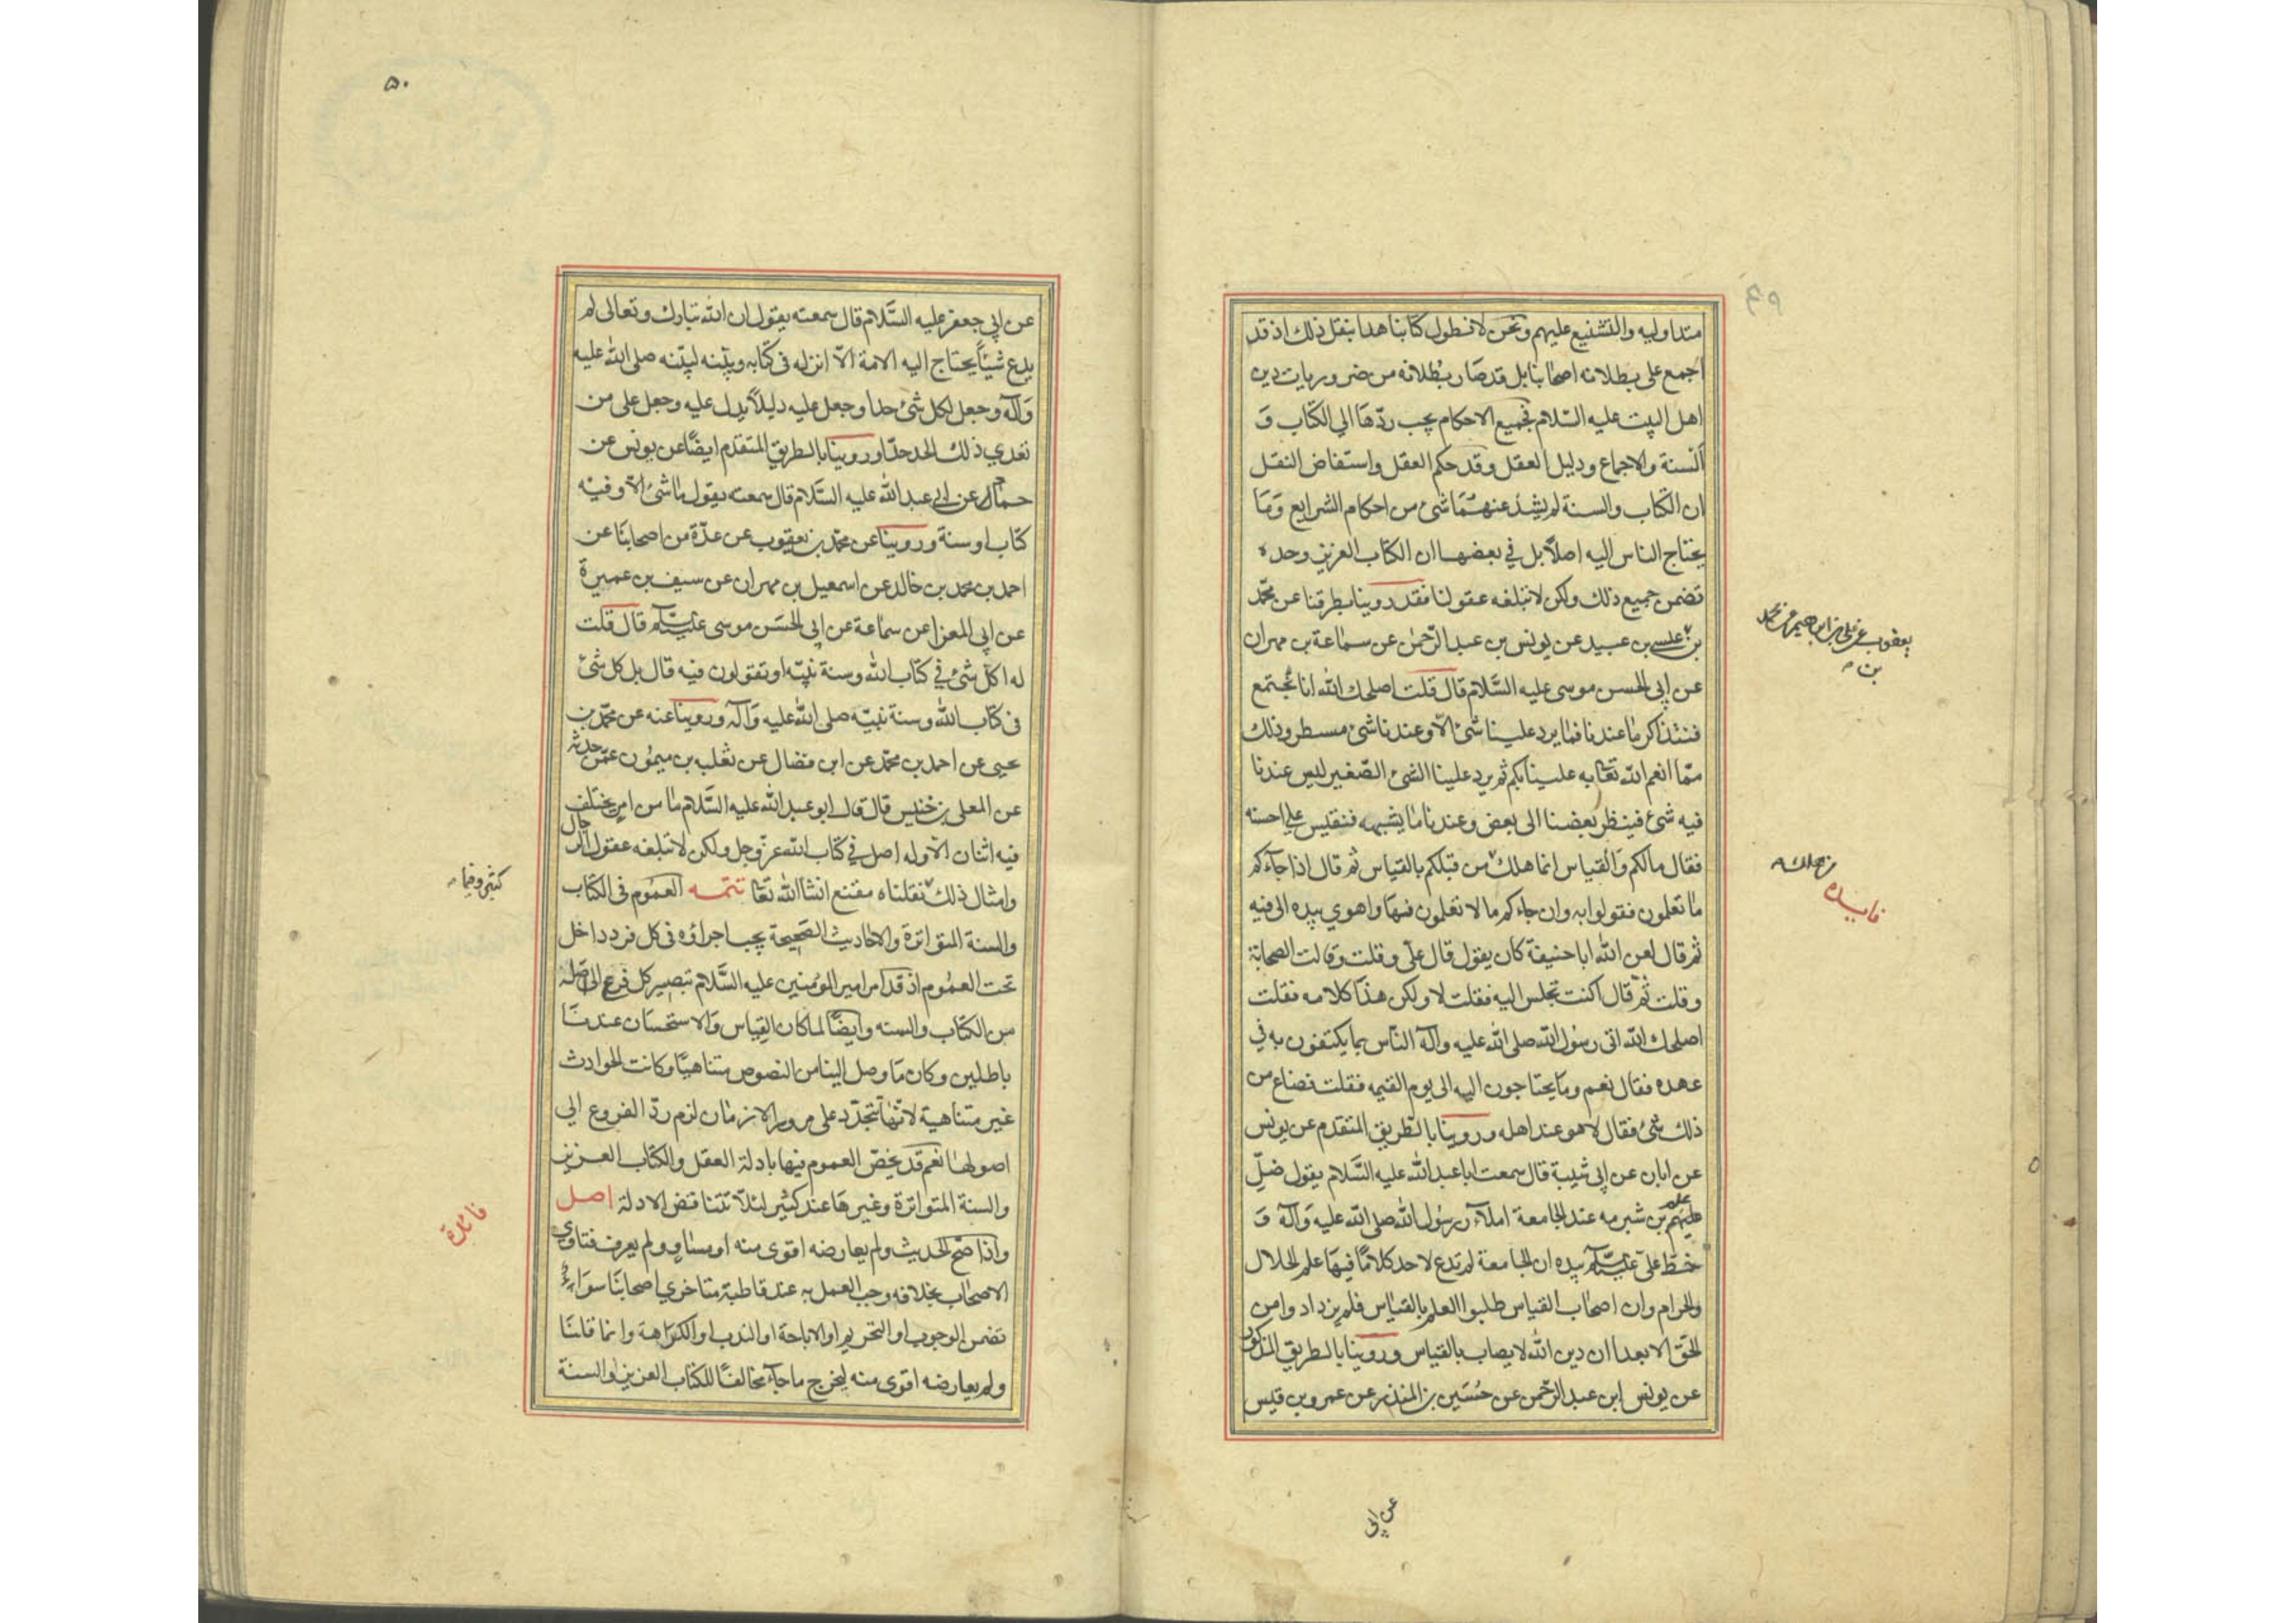 متداوليه والتشنيع عليهم ونحن لا نطول كتابنا هذا بنقل ذلك اذ قد
اجمع على بطلانه اصحابنا بل قد صار بطلانه من ضروريات دين
اهل البيت عليه السّلام فجميع الاحكام يجب ردّها الي الكتاب و
السنة والاجماع ودليل العقل وقد حكم العقل واستفاض النقل
ان الكتاب والسنة لم يشذ عنهما شئ من احكام الشرايع وما
يحتاج الناس اليه اصلاً بل في بعضها ان الكتاب العزيز وحده
تضمن جميع ذلك ولكن لا تبلغه عقولنا فقد روينا بطرقنا عن محمّد
بن عيسي بن عبيد عن يونس بن عبد الرّحمن عن سماعة بن مهران
يعقوب عن علي بن ابراهيم عن محمد
بن
عن ابي الحسن موسى عليه السَّلام قال قلت اصلحك اللّه انا نجتمع
فنتذاكر ما عندنا فما يرد علينا شئ الّا وعندنا شئ مسطر وذلك
ممّا انعم اللّه تعا به علينا بكم ثم يرد علينا الشئ الصّغير ليس عندنا
فيه شئ فينظر بعضنا الى بعض وعندنا ما يشبهه فنقيس علي احسنه
فقال مالكم والقياس انما هلك من قبلكم بالقياس ثم قال اذا جاءكم
من هلك
فايده
ما تعلمون فقولوا به وان جاءكم ما لا تعلمون فيها واهوي بيده الى فيه
ثم قال لعن اللّه ابا حنيفة كان يقول قال علّى وقلت وقالت الصحابة
وقلت ثم قال اكنت تجلس اليه فقلت لا ولكن هذا كلامه فقلت
اصلحك اللّه اتى رسول اللّه صلى اللّه عليه وآله النّاس بما يكتفون به في
عهده فقال نعم وما يحتاجون اليه الى يوم القيمه فقلت فضاع من
ذلك شئ فقال لا هو عند اهله وروينا بالطريق المتقدم عن يونس
عن ابان عن ابي شيبة قال سمعت ابا عبد اللّه عليه السَّلام يقول ضلّ
علم بن شبرمه عند الجامعة املاء رسول اللّه صلى اللّه عليه وآله و
خطّ علّى عليه السّلام بيده ان الجامعة لم تدع لاحد كلامًا فيها علم الحلال
والحرام وان اصحاب القياس طلبوا العلم بالقياس فلم يزدادوا من
الحق الا بعدا ان دين اللّه لا يصاب بالقياس وروينا بالطريق المذكور
عن يونس ابن عبد الرّحمن عن حسين بن المنذر عن عمرو بن قيس
عن ابي
٥٠
عن ابي جعفر عليه السَّلام قال سمعته يقول ان اللّه تبارك وتعالى لم
يدع شيئاً يحتاج اليه الامة الّا انزله فى كتابه وبيّنه لنبيّنه صلى اللّه عليه
وآله وجعل لكل شئ حدا وجعل عليه دليلاً يدل عليه وجعل على من
تعدي ذلك الحد حدّا وروينا بالطريق المتقدم ايضًا عن يونس عن
حماد عن ابي عبد اللّه عليه السَّلام قال سمعته يقول ما شئ الّا وفيه
كتاب او سنة وروينا عن محمّد بن يعقوب عن عدّة من اصحابنا عن
احمد بن محمد بن خالد عن اسمعيل بن مهران عن سيف بن عميرة
عن ابي المعزا عن سماعة عن ابي الحسَن موسى عليه السّلام قال قلت
له اكل شئ في كتاب اللّه وسنة نبيّه او تقولون فيه قال بل كل شئ
فى كتاب اللّه وسنة نبيّه صلى اللّه عليه وآله وروينا عنه عن محمّد بن
يحيى عن احمد بن محمّد عن ابن فضال عن ثعلب بن ميمون عمّن حدثه
عن المعلى بن خنيس قال قال ابو عبد اللّه عليه السَّلام ما من امر يختلف
فيه اثنان الّا وله اصل في كتاب اللّه عزّ وجل ولكن لا تبلغه عقول الرجال
وامثال ذلك نقلناه مقنع انشا اللّه تعا تتمه العموم فى الكتاب
كثير وفيما
والسنة المتواترة والاحاديث الصّحيحة يجب اجراؤه فى كل فرد داخل
تحت العموم اذ قد امر امير المؤمنين عليه السَّلام بتصيير كل فرع الى اصله
من الكتاب والسنه وايضًا لما كان القياس والاستحسان عندنا
باطلين وكان ما وصل الينا من النصوص متناهيًا وكانت الحوادث
غير متناهية لانّها تتجدّد على مرور الازمان لزم ردّ الفروع الي
اصولها نعم قد يخصّ العموم فيها بادلة العقل والكتاب العزيز
والسنة المتواترة وغيرها عند كثير لئلّا تتناقض الادلة اصل
فائدة
واذا صحّ الحديث ولم يعارضه اقوى منه او مساوٍ ولم يعرف فتاوي
الاصحاب بخلافه وجب العمل به عند قاطبة متاخري اصحابنا سواء
تضمن الوجوب او التحريم او الاباحة او الندب او الكراهة وانما قلنا
ولم يعارضه اقوى منه ليخرج ما جاء مخالفًا للكتاب العزيز او السنة